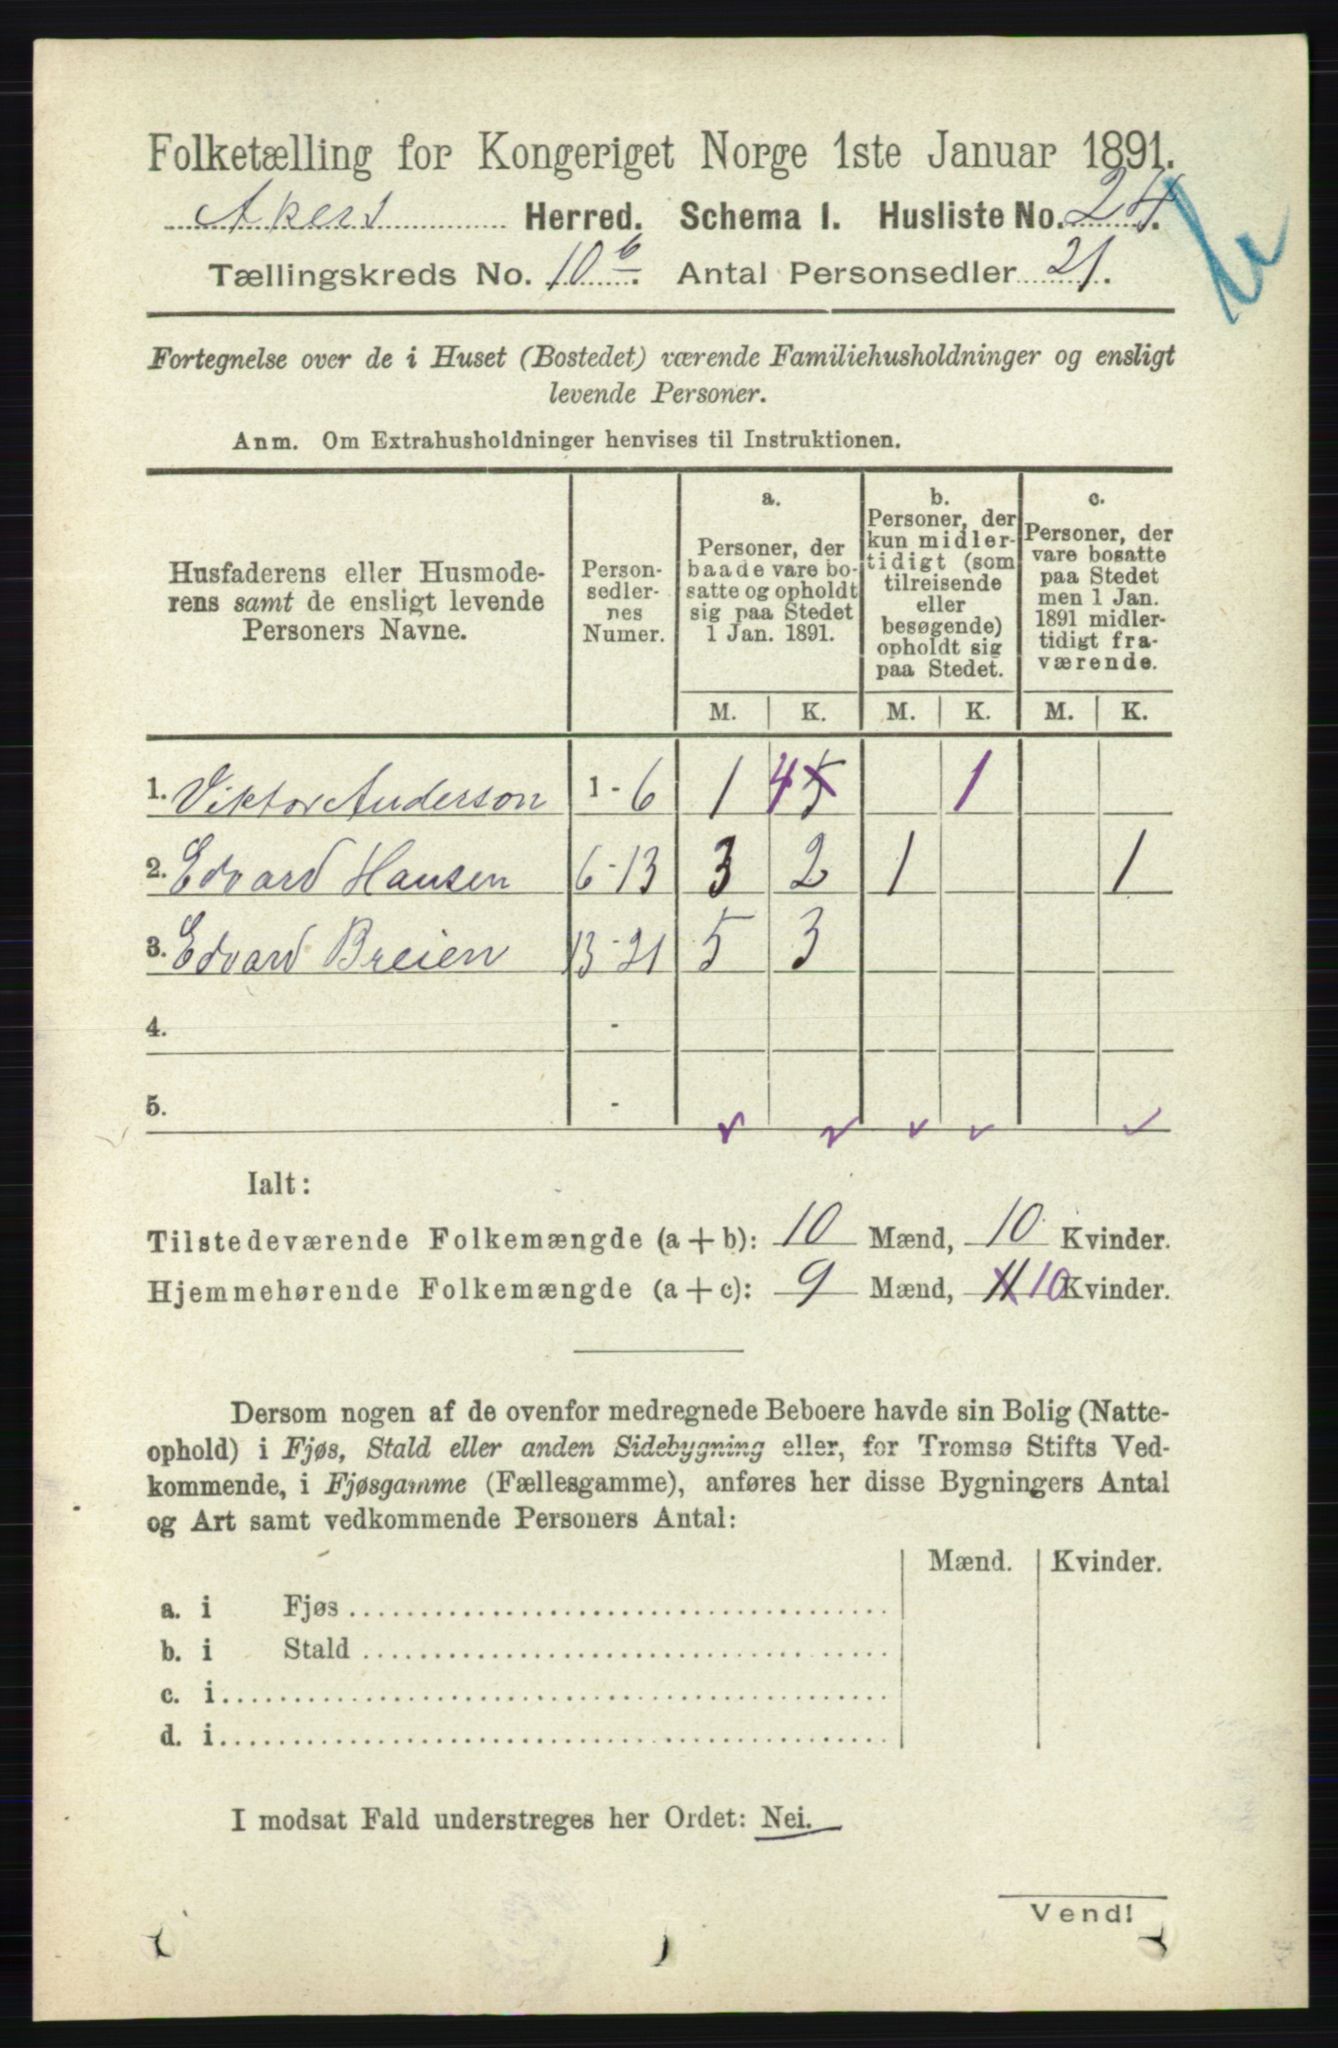 Folketælling for Kongeriget Norge 1ste Januar 1891.
Akers Herred. Schema I. Husliste No. 24.
Tællingskreds No. 10 b. Antal Personsedler 21.
Fortegnelse over de i Huset (Bostedet) værende Familiehusholdninger og ensligt
levende Personer.
Anm. Om Extrahusholdninger henvises til Instruktionen.
Husfaderens eller Husmode-
rens samt de ensligt levende
Personers Navne.
Person-
sedler-
nes
Numer.
a.
Personer, der
baade vare bo-
satte og opholdt
sig paa Stedet
1 Jan. 1891.
b.
Personer, der
kun midler-
tidigt (som
tilreisende
eller
besøgende)
opholdt sig
paa Stedet.
c.
Personer, der
vare bosatte
paa Stedet
men 1 Jan.
1891 midler-
tidigt fra-
værende.
M. K. M. K. M. K.
1. Viktor Anderson 1 - 6 1 4 5 1
2. Edvard Hansen 6-13 3 2 1 1
3. Edvard Breien 13-21 5 3
4. -
5. -
Ialt:
Tilstedeværende Folkemængde (a + b): 10 Mænd, 10 Kvinder.
Hjemmehørende Folkemængde (a + c): 9 Mænd, 11 10 Kvinder.
Dersom nogen af de ovenfor medregnede Beboere havde sin Bolig (Natte-
ophold) i Fjøs, Stald eller anden Sidebygning eller, for Tromsø Stifts Ved-
kommende, i Fjøsgamme (Fællesgamme), anføres her disse Bygningers Antal
og Art samt vedkommende Personers Antal:
Mænd. Kvinder.
a. i Fjøs
b. i Stald
c. i
d. i
I modsat Fald understreges her Ordet: Nei.
Vend!